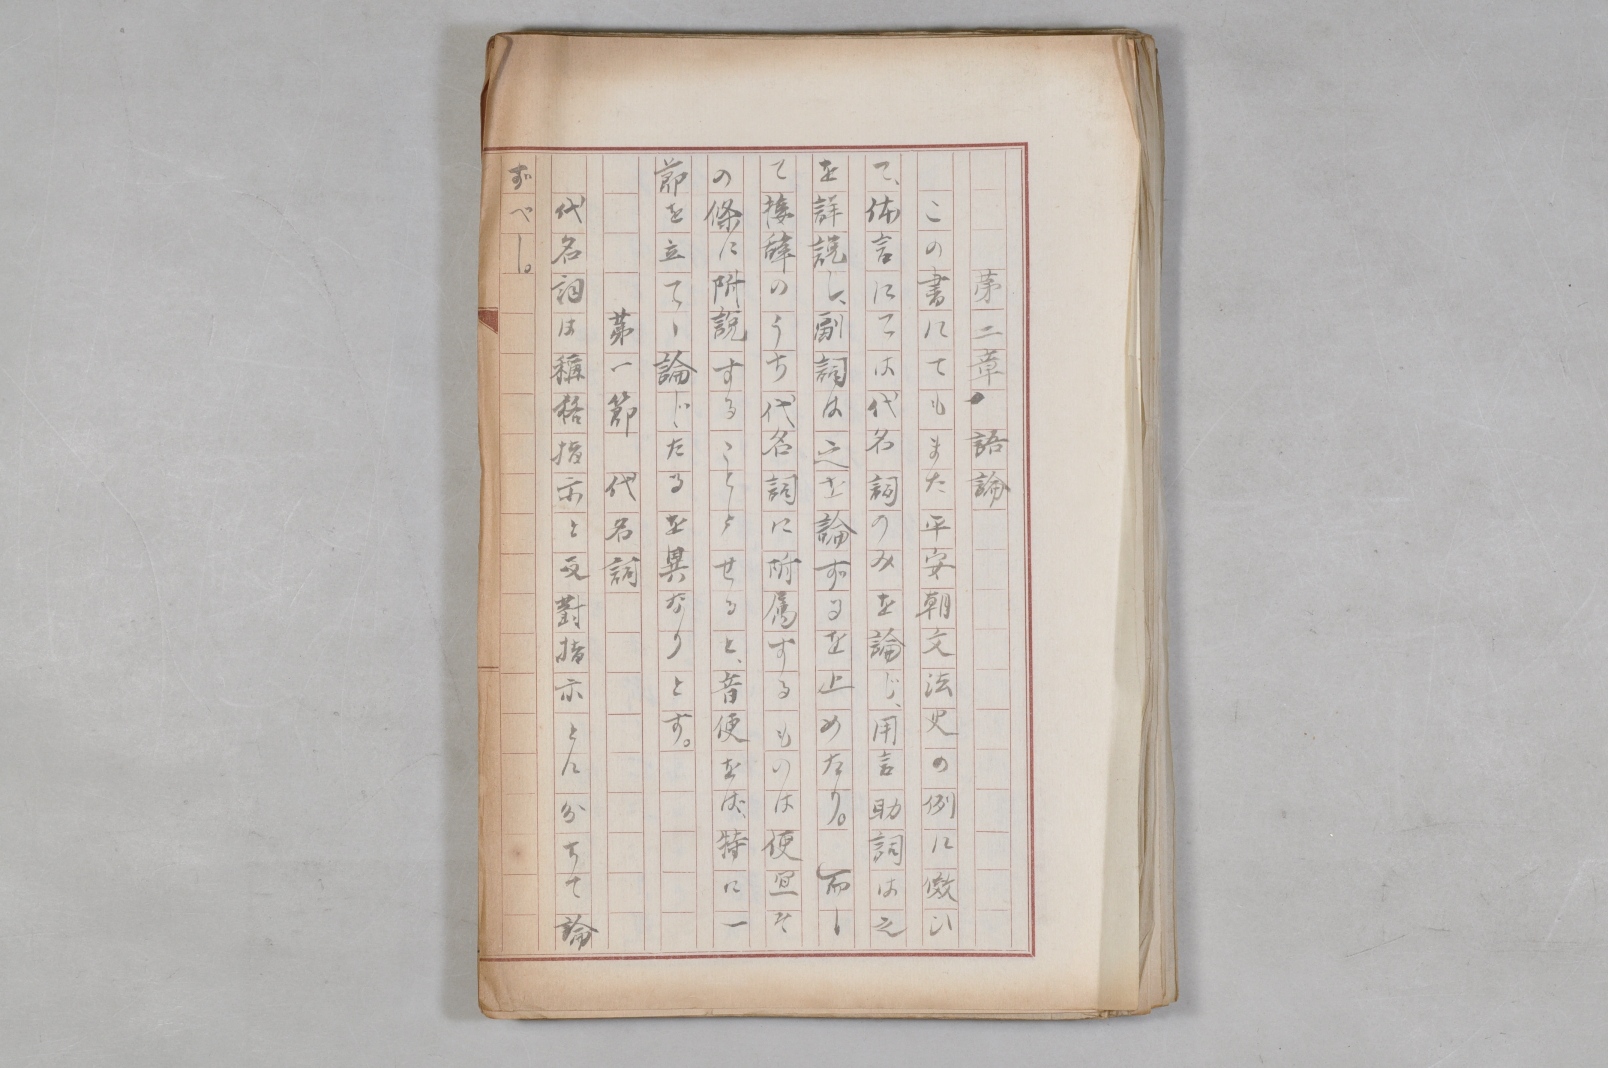 第二章 語論
この書にてもまた平安朝文法史の例に傚ひ
て、体言にては代名詞のみを論じ、用言助詞は之
を詳説し、副詞は之を論ずるを止めたり。而し
て接辞のうち代名詞に附属するものは便宜そ
の條に附説することゝせると、音便をば、特に一
節を立てゝ論じたるを異なりとす。
第一節 代名詞
代名詞は稱格指示と反對指示とに分ちて論
ずべし。